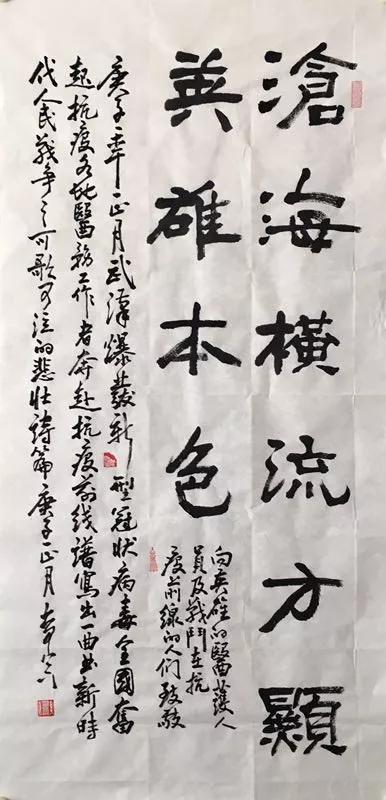 滄海橫流方顯
英雄本色
向英雄的醫護人
員及戰鬥在抗
疫前線的人们致敬
庚子年正月武漢爆發新型冠状病毒全國奮
起抗疫各地醫務工作者奔赴抗疫前线譜寫出一曲曲新時
代人民戰爭之可歌可泣的悲壮詩篇庚子正月